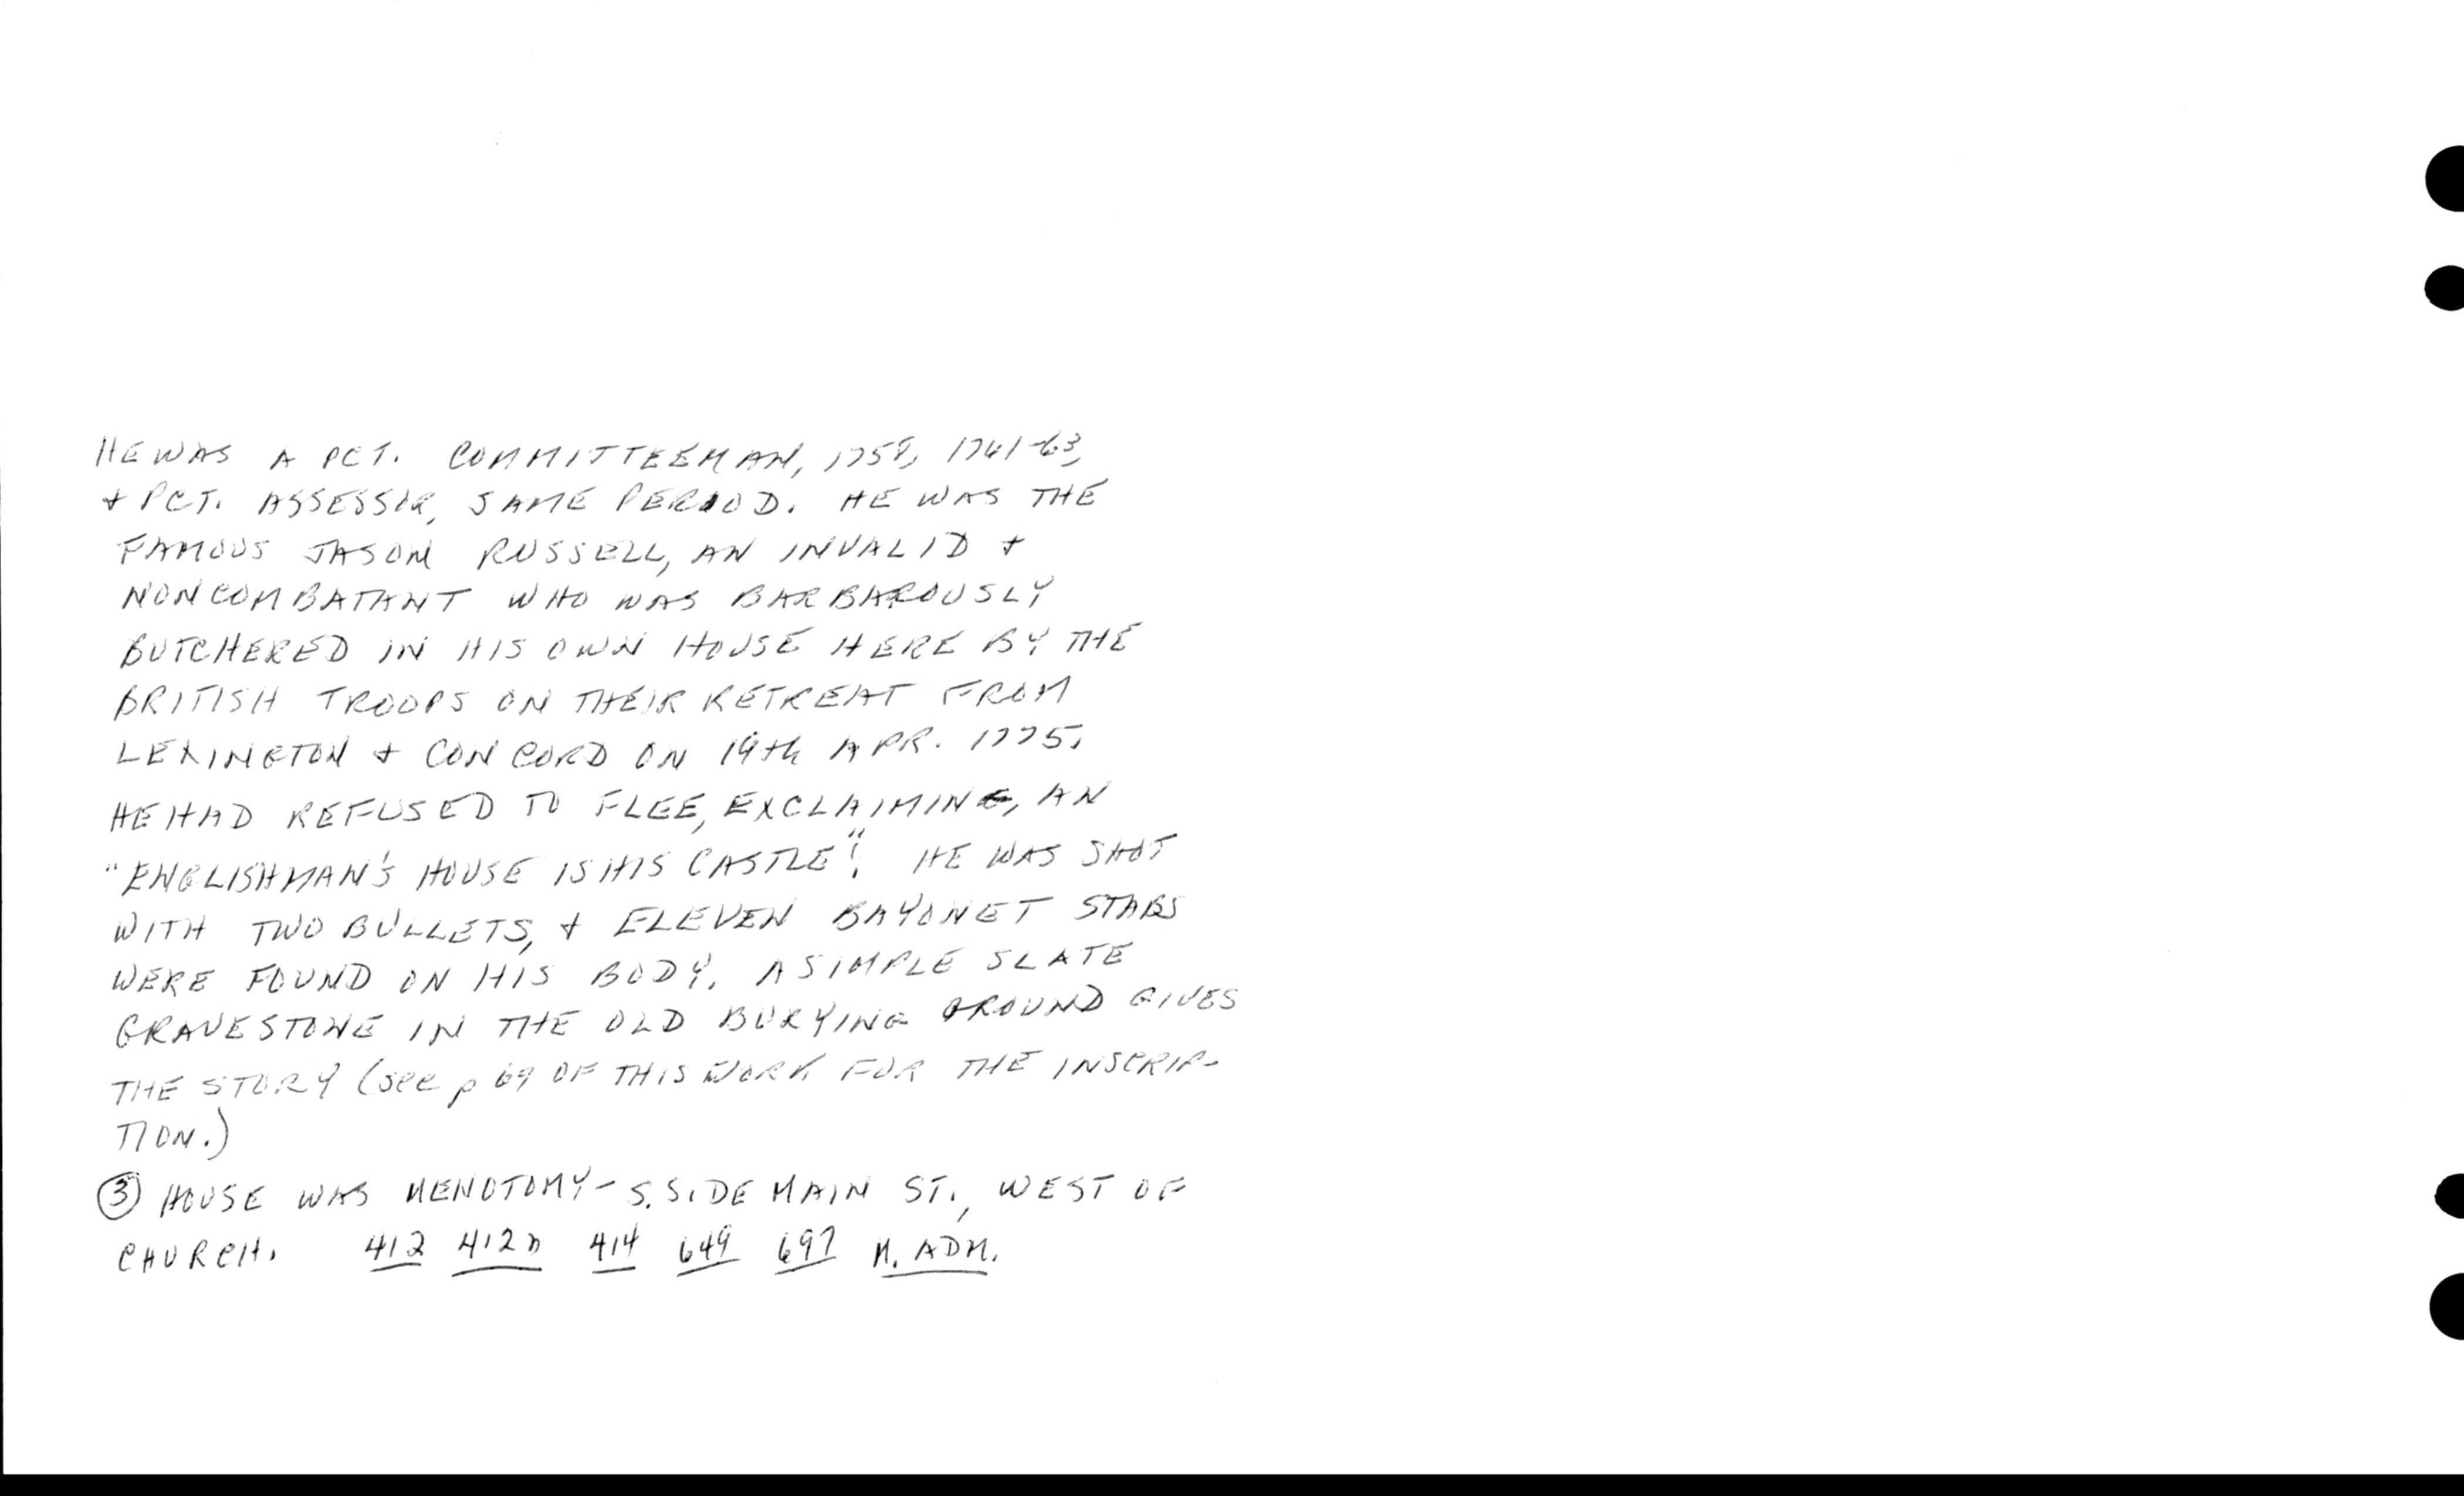 HE WAS A PCT. COMMITTEEMAN, 1758, 1761-63,
+ PCT. ASSESSOR, SAME PERIOD. HE WAS THE
FAMOUS JASON RUSSELL, AN INVALID +
NONCOMBATANT WHO WAS BARBAROUSLY
BUTCHERED IN HIS OWN HOUSE HERE BY THE
BRITISH TROOPS ON THEIR RETREAT FROM
LEXINGTON + CONCORD ON 19th APR. 1775.
HE HAD REFUSED TO FLEE, EXCLAIMING, AN
"ENGLISHMAN'S HOUSE IS HIS CASTLE". HE WAS SHOT
WITH TWO BULLETS, + ELEVEN BAYONET STABS
WERE FOUND ON HIS BODY. A SIMPLE SLATE
GRAVESTONE IN THE OLD BURYING GROUND GIVES
THE STORY (see p 69 OF THIS WORK FOR THE INSCRIP-
TION.)
③ HOUSE WAS MENOTOMY - S. SIDE MAIN ST., WEST OF
CHURCH. 412 412n 414 649 697 M. ADM.